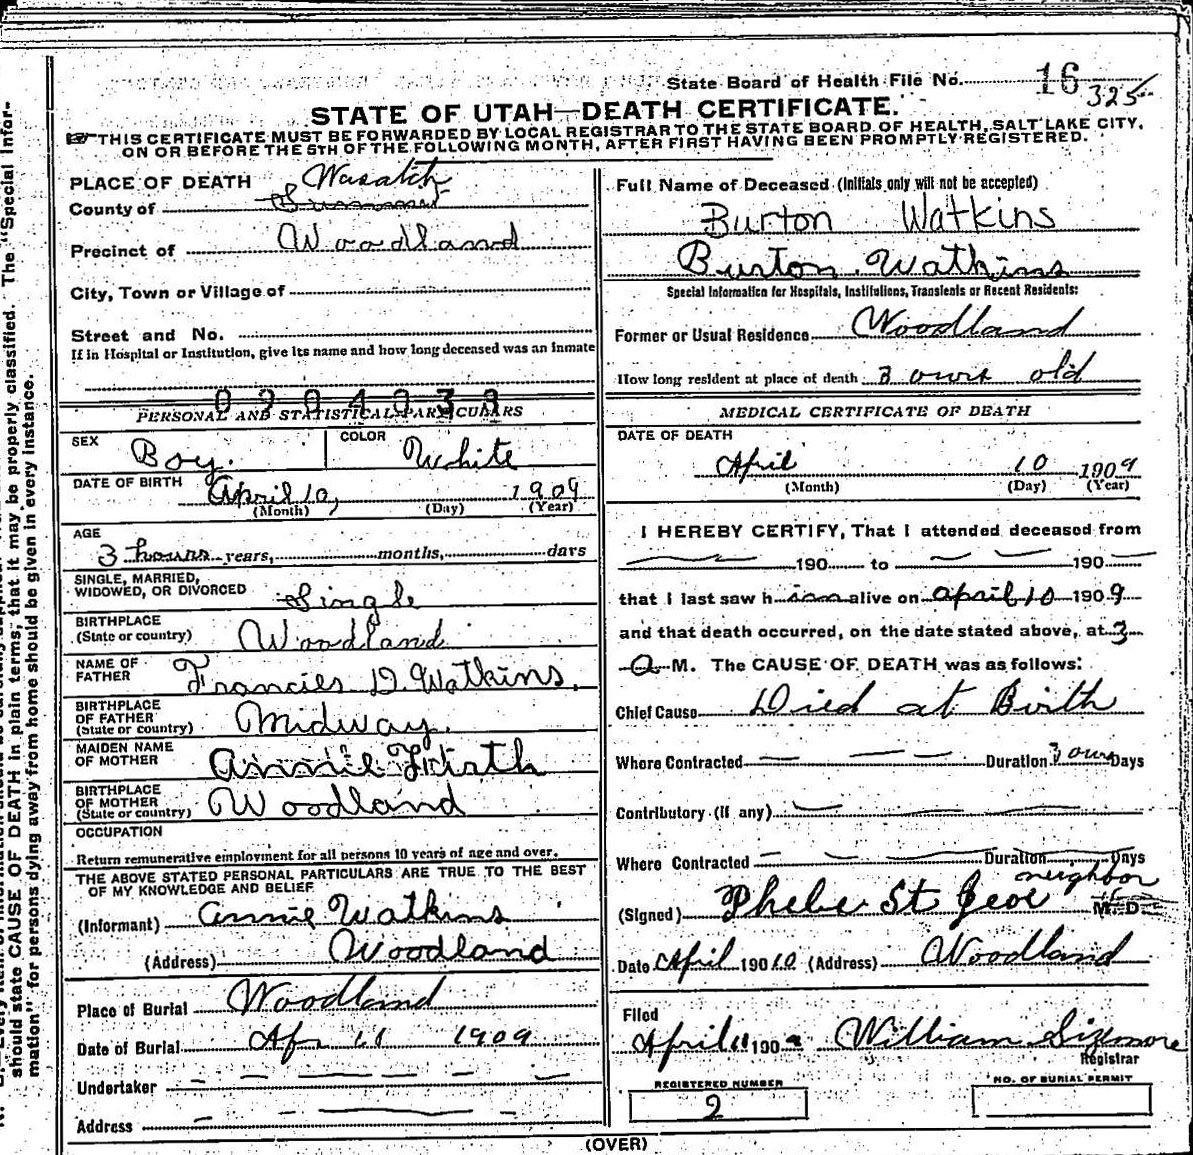 State Board of Health File No. 16
325
STATE OF UTAH—DEATH CERTIFICATE.
☞THIS CERTIFICATE MUST BE FORWARDED BY LOCAL REGISTRAR TO THE STATE BOARD OF HEALTH, SALT LAKE CITY,
ON OR BEFORE THE 5TH OF THE FOLLOWING MONTH, AFTER FIRST HAVING BEEN PROMPTLY REGISTERED.
PLACE OF DEATH Wasatch
County of Summit
Precinct of Woodland
City, Town or Village of
Street and No.
If in Hospital or Institution, give its name and how long deceased was an inmate
PERSONAL AND STATISTICAL PARTICULARS
SEX Boy. COLOR White
DATE OF BIRTH April 10, 1909
(Month) (Day) (Year)
AGE
3 hours years, months, days
SINGLE, MARRIED,
WIDOWED, OR DIVORCED Single
BIRTHPLACE
(State or country) Woodland
NAME OF
FATHER Francies D. Watkins.
BIRTHPLACE
OF FATHER
(State or country) Midway.
MAIDEN NAME
OF MOTHER Annie
BIRTHPLACE
OF MOTHER
(State or country) Woodland
OCCUPATION
Return remunerative employment for all persons 10 years of age and over.
THE ABOVE STATED PERSONAL PARTICULARS ARE TRUE TO THE BEST
OF MY KNOWLEDGE AND BELIEF
(Informant) Annie Watkins
(Address) Woodland
Place of Burial Woodland
Date of Burial Apr 11 1909
Undertaker
Address
Full Name of Deceased (Initials only will not be accepted)
Burton Watkins
Burton Watkins
Special Information for Hospitals, Institutions, Transients or Recent Residents:
Former or Usual Residence Woodland
How long resident at place of death 3 ours old
MEDICAL CERTIFICATE OF DEATH
DATE OF DEATH
April 10 1909
(Month) (Day) (Year)
I HEREBY CERTIFY, That I attended deceased from
190 to 190
that I last saw him alive on April 10 1909
and that death occurred, on the date stated above, at 3
A M. The CAUSE OF DEATH was as follows:
Chief Cause Died at Birth
Where Contracted Duration 3 ours Days
Contributory (if any)
Where Contracted Duration Days
neighbor
(Signed) Phebe St Jeor M. D.
Date April 190 10 (Address) Woodland
Filed
April 11 1909 William Sizemore
Registrar
REGISTERED NUMBER
2
NO. OF BURIAL PERMIT
(OVER)
should state CAUSE OF DEATH in plain terms, that it may be properly classified. The "Special Infor-
mation" for persons dying away from home should be given in every instance.